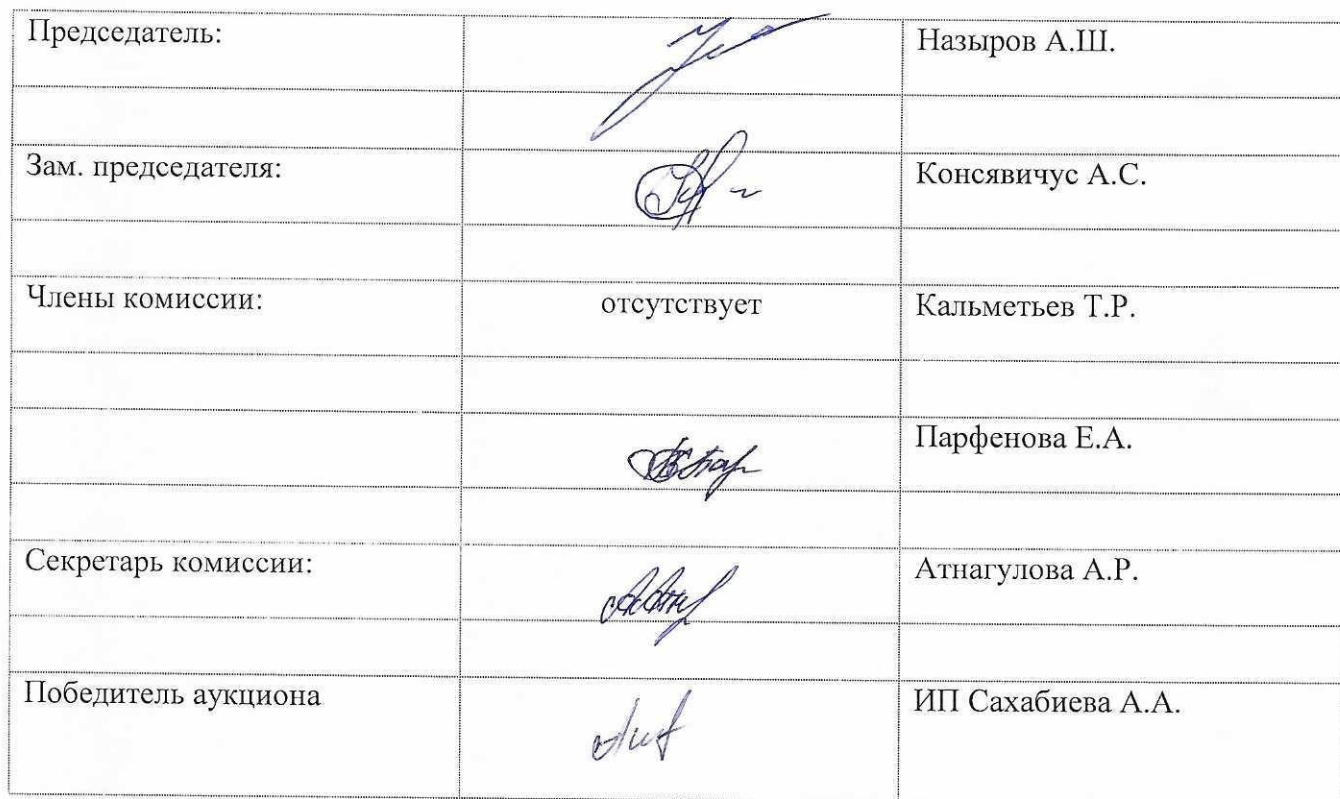 Председатель: Назыров А.Ш.
Зам. председателя: Консявичус А.С.
Члены комиссии: отсутствует Кальметьев Т.Р.
Парфенова Е.А.
Секретарь комиссии: Атнагулова А.Р.
Победитель аукциона ИП Сахабиева А.А.